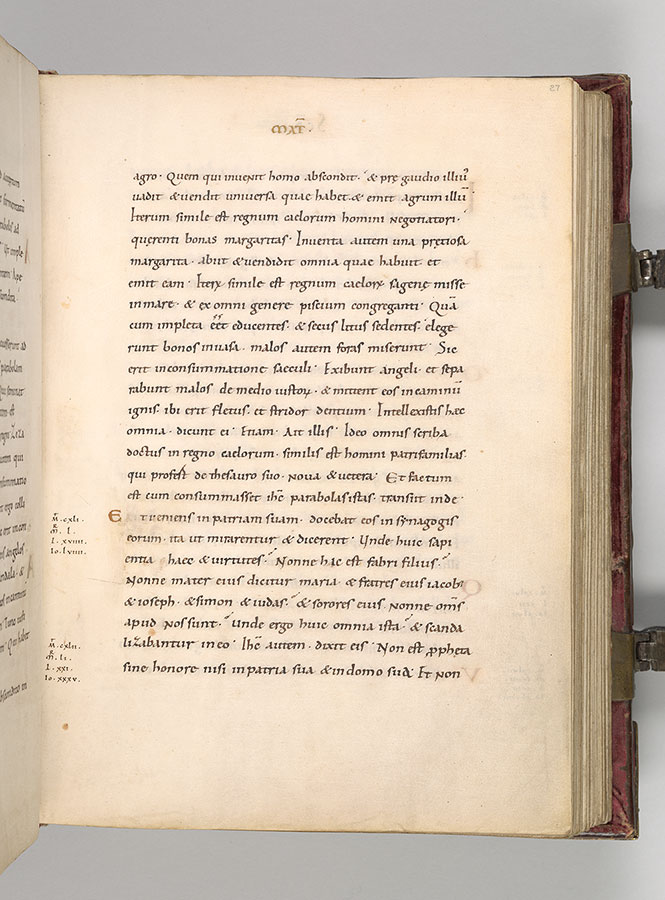 27
MAT̄.
agro· Quem qui invenit homo abscondit· & prę gaudio illiuˀ
uadit &vendit universa quae habet· & emit agrum illū
Iterum simile est regnum caelorum homini negotiatori·
querenti bonas margaritas· Inventa autem una prętiosa
margarita· abiit &vendidit omnia quae habuit et
emit eam· Iterꝝ simile est regnum caeloꝝ sagenę misse
in mare· & ex omni genere piscium congreganti· Quā
cum impleta eēt educentes· & secus litus sedentes· elege
runt bonos in vasa· malos autem foras miserunt· Sic
erit in consummatione saeculi· Exibunt angeli· et sepa
rabunt malos de medio iustoꝝ· & mittent eos in caminū
ignis· ibi erit fletus· et stridor dentium· Intellexistis haec
omnia· dicunt ei· Etiam· Ait illis· Ideo omnis scriba
doctus in regno caelorum· similis est homini patrifamilias·
qui profert de thesauro suo· nova & vetera· Et factum
est cum consummasset ihc̄ parabolas istas· transiit inde·
Et veniens in patriam suam· docebat eos in synagogis
eorum· ita ut mirarentur & dicerent· Unde huic sapi
entia haec & virtutes· Nonne hac est fabri filius·
Nonne mater eius dicitur maria· & fratres eius iacobˀ
& ioseph· & simon & iudas· & sorores eius nonne om̄s
apud nos sunt· Unde ergo huic omnia ista· & scanda
lizabantur in eo· Ihc̄ autem· dixit eis· Non est ꝓpheta
sine honore nisi in patria sua & in domo sua· Et non
M̄· cxli·
m̄· l·
l· xviiii·
io· lviiii·
M̄· cxlii·
m̄· li·
l· xxi·
io· xxxv·